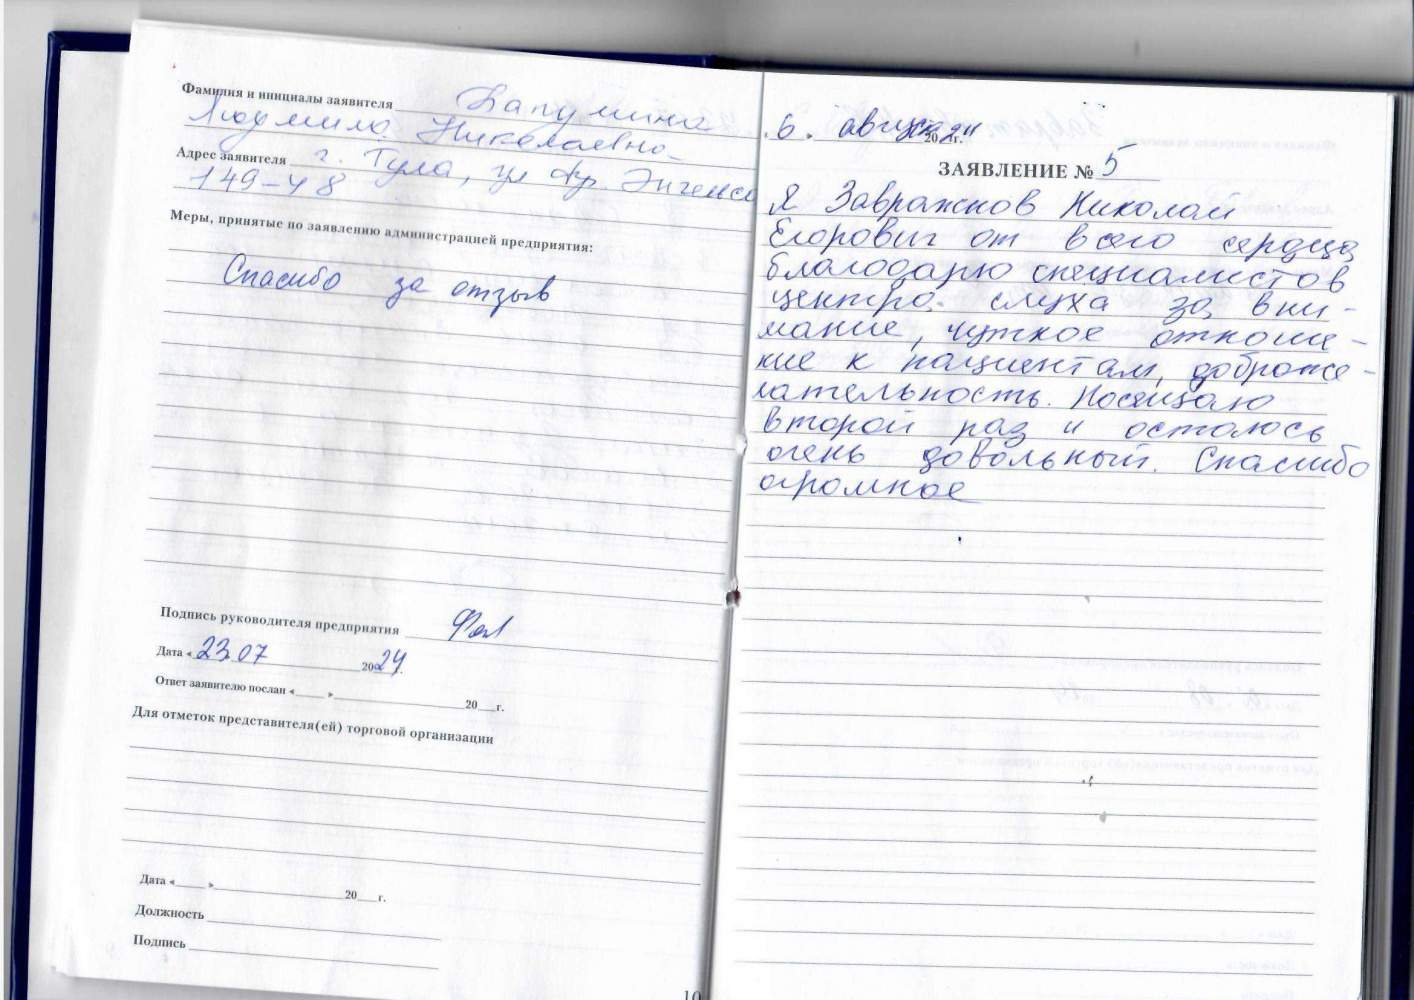 Фамилия и инициалы заявителя Лапушина
Людмила Николаевна
Адрес заявителя г. Тула, ул. Фр. Энгельса
149-48
Меры, принятые по заявлению администрацией предприятия:
Спасибо за отзыв
Подпись руководителя предприятия
Дата « 23.07 2024.
Ответ заявителю послан «____ »____ 20__г.
Для отметок представителя(ей) торговой организации
Дата «____ »____ 20___г.
Должность
Подпись
10
6. август 2024г.
ЗАЯВЛЕНИЕ № 5
Я Завражнов Николай
Егорович от всего сердца
благодарю специалистов
центра слуха за вни-
мание, чуткое отноше-
ние к пациентам, доброже-
лательность. Посещаю
второй раз и остаюсь
очень довольный. Спасибо
огромное